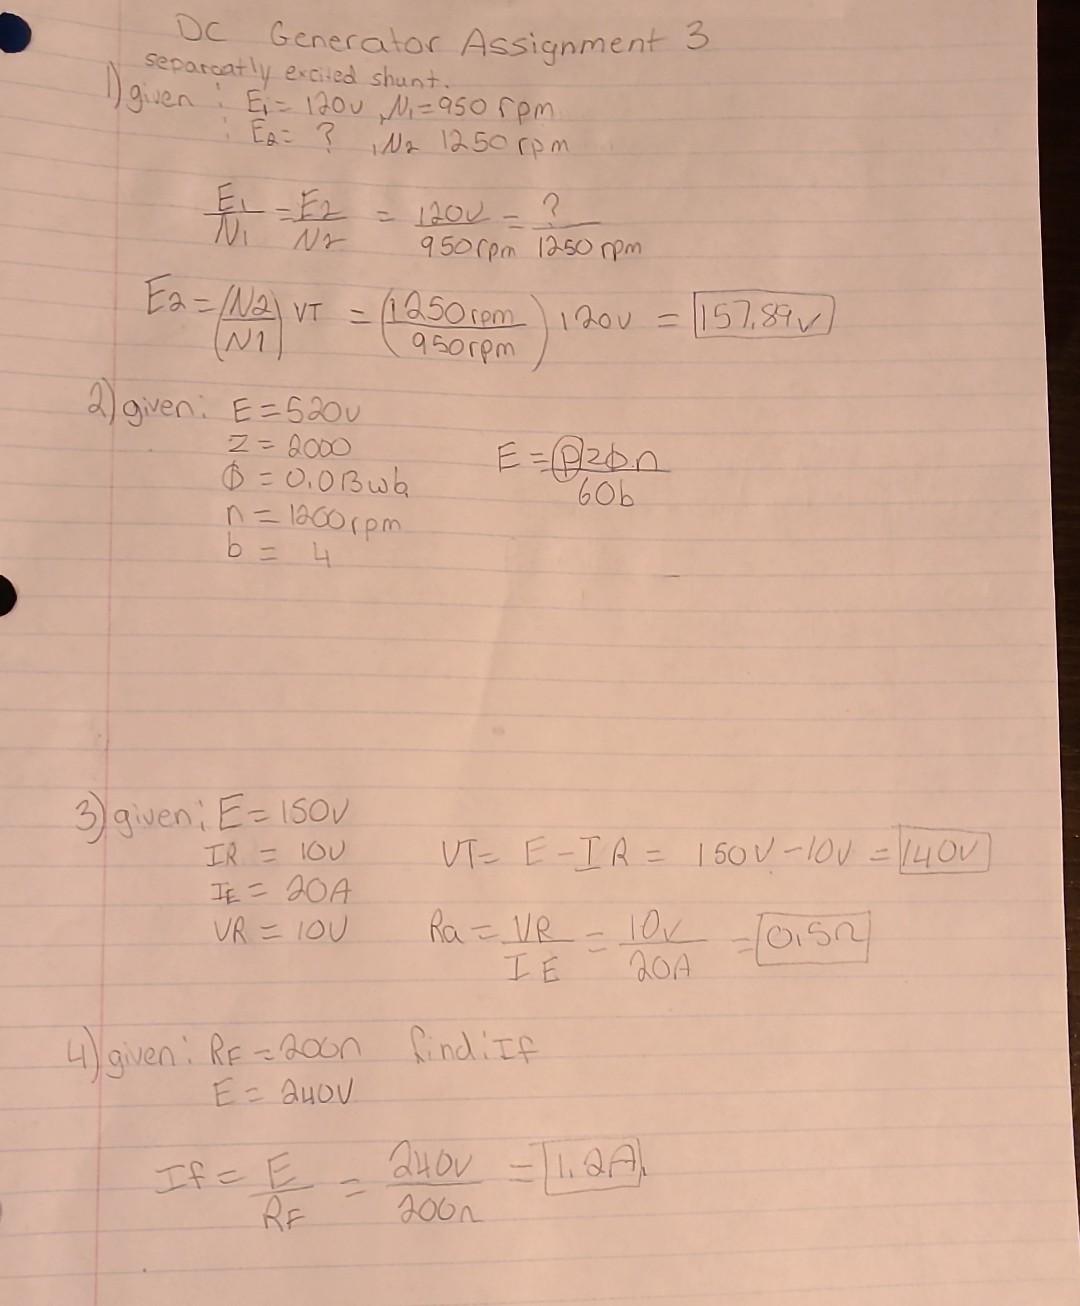 DC Generator Assignment 3
separcatly excited shunt.
1) given : E1 = 120v , N1 = 950 rpm
: E2 = ? , N2 1250 rpm
E1/N1 = E2/N2 = 120v/950rpm = ?/1250 rpm
E2 = (N2/N1) VT = (1250rpm/950rpm) 120v = 157.89v
2) given: E = 520v
Z = 2000
E = PZϕ.n/60b
ϕ = 0.013wb
n = 1200rpm
b = 4
3) given; E = 150v
IR = 10v
VT = E - IR = 150v - 10v = 140v
IE = 20A
VR = 10v
Ra = VR/IE = 10v/20A = 0.5Ω
4) given: RF = 200Ω find: If
E = 240V
If = E/RF = 240v/200Ω = 1.2A